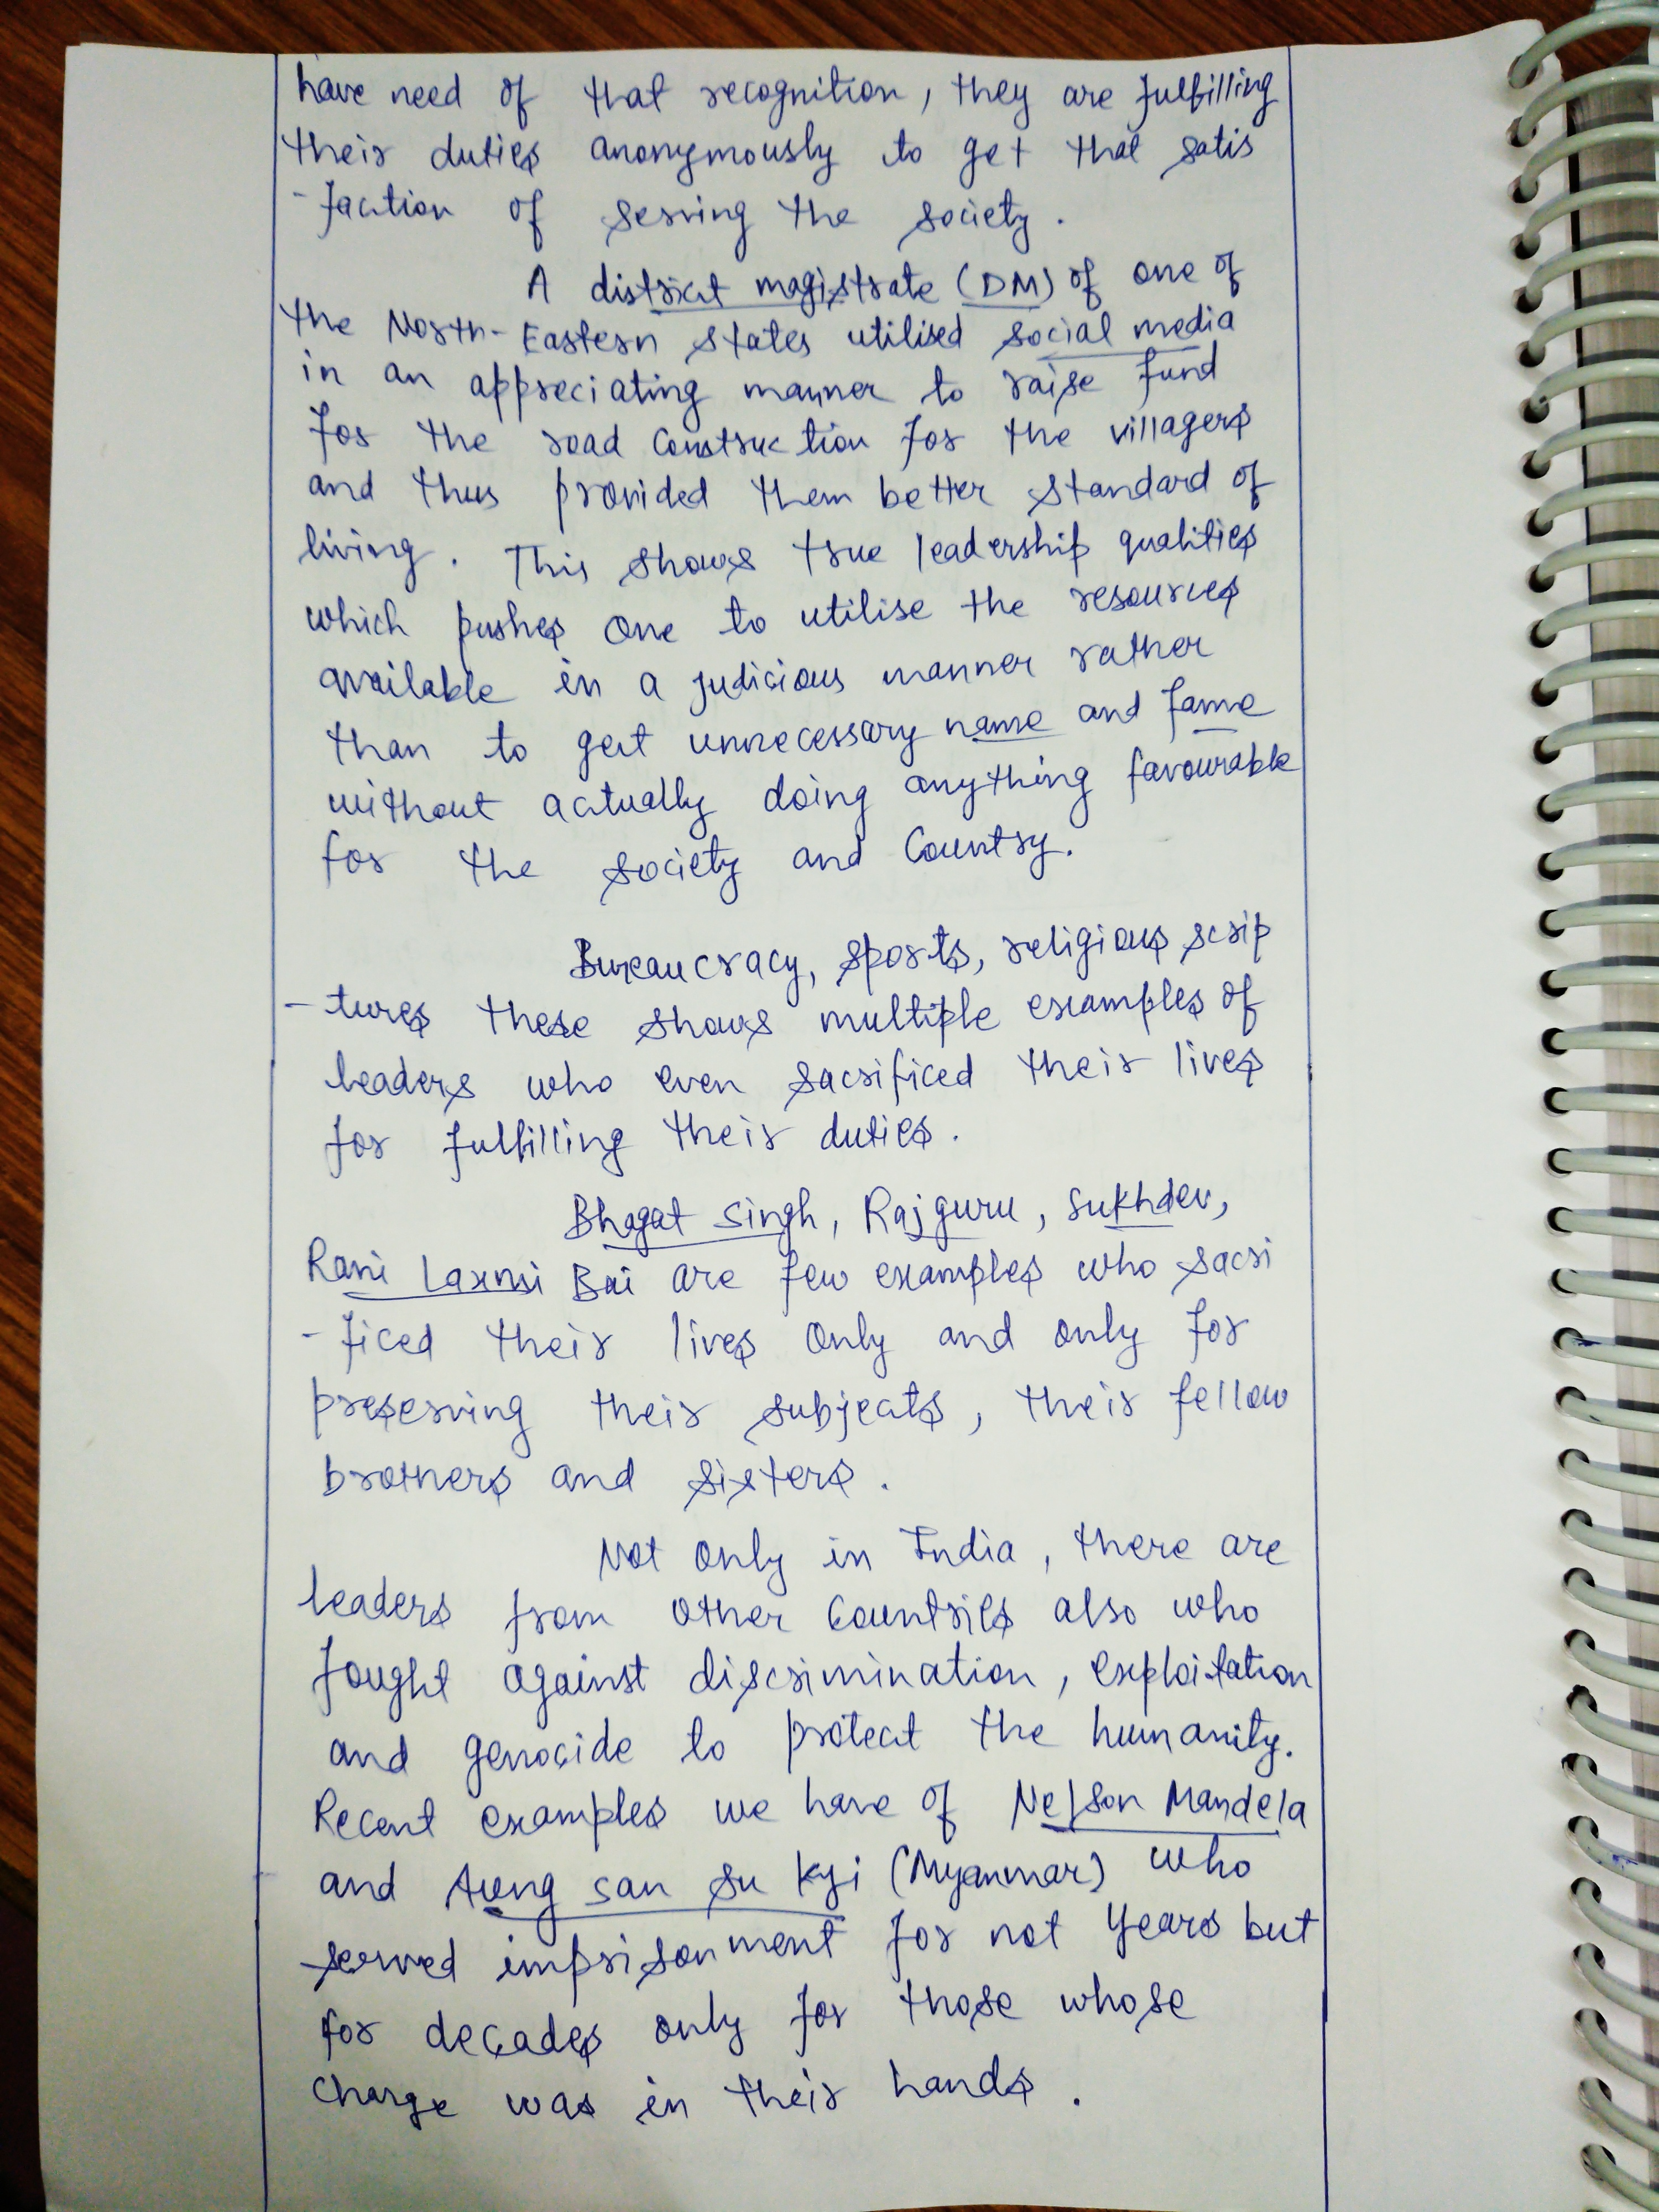 have need of that recognition, they are fulfilling
their duties anonymously to get that satis
-faction of serving the society.
A district magistrate (DM) of one of
the North-Eastern states utilised social media
in an appreciating manner to raise fund
for the road construction for the villagers
and thus provided them better standard of
living. This shows true leadership qualities
which pushes one to utilise the resources
available in a judicious manner rather
than to get unnecessary name and fame
without actually doing anything favourable
for the society and Country.
Bureaucracy, sports, religious scrip
-tures these shows multiple examples of
leaders who even sacrificed their lives
for fulfilling their duties.
Bhagat Singh, Rajguru, Sukhdev,
Rani Laxmi Bai are few examples who sacri
-ficed their lives only and only for
preserving their subjects, their fellow
brothers and sisters.
Not only in India, there are
leaders from other Countries also who
fought against discrimination, exploitation
and genocide to protect the humanity.
Recent examples we have of Nelson Mandela
and Aung San Su Kyi (Myanmar) who
served imprisonment for not years but
for decades only for those whose
charge was in their hands.